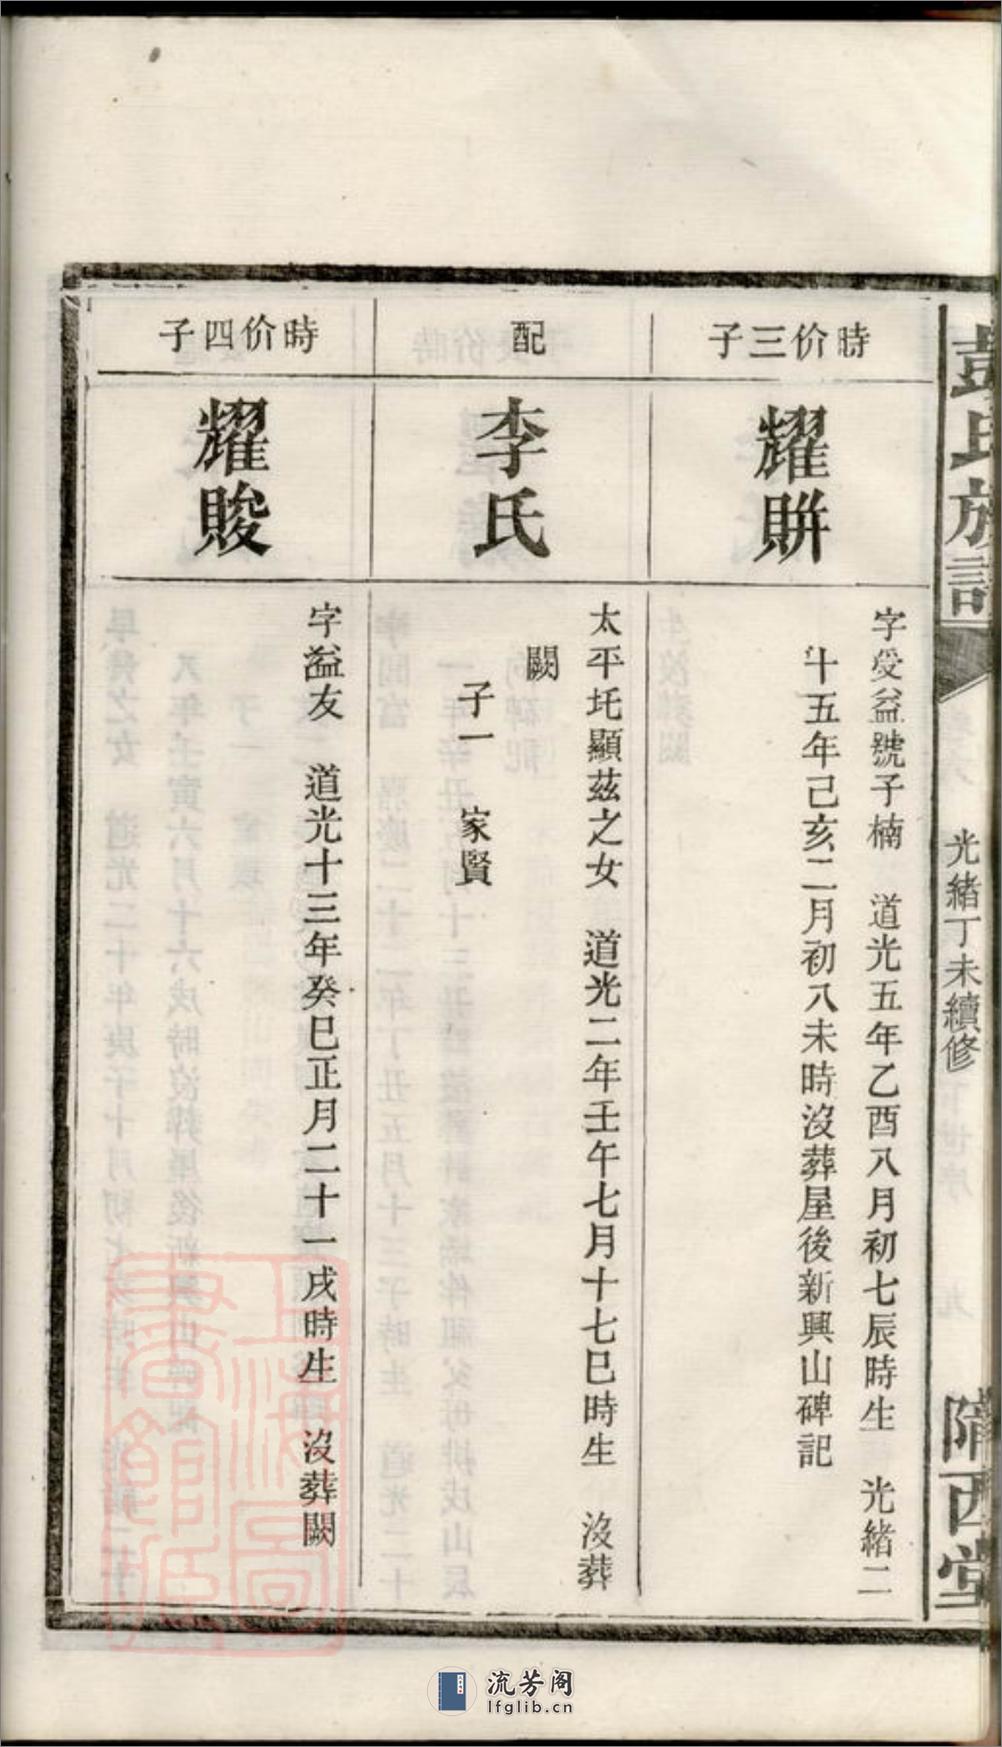 彭氏族譜
光緒丁未續修
隴西堂
時价三子
耀賆
字受益號子楠　道光五年乙酉八月初七辰時生　光緒二
十五年己亥二月初八未時沒葬屋後新興山碑記
配
李氏
太平圫顯茲之女　道光二年壬午七月十七巳時生　沒葬
闕
子一　家賢
時价四子
耀賐
字溢友　道光十三年癸巳正月二十一戌時生　沒葬闕
流芳阁
lfglib.cn